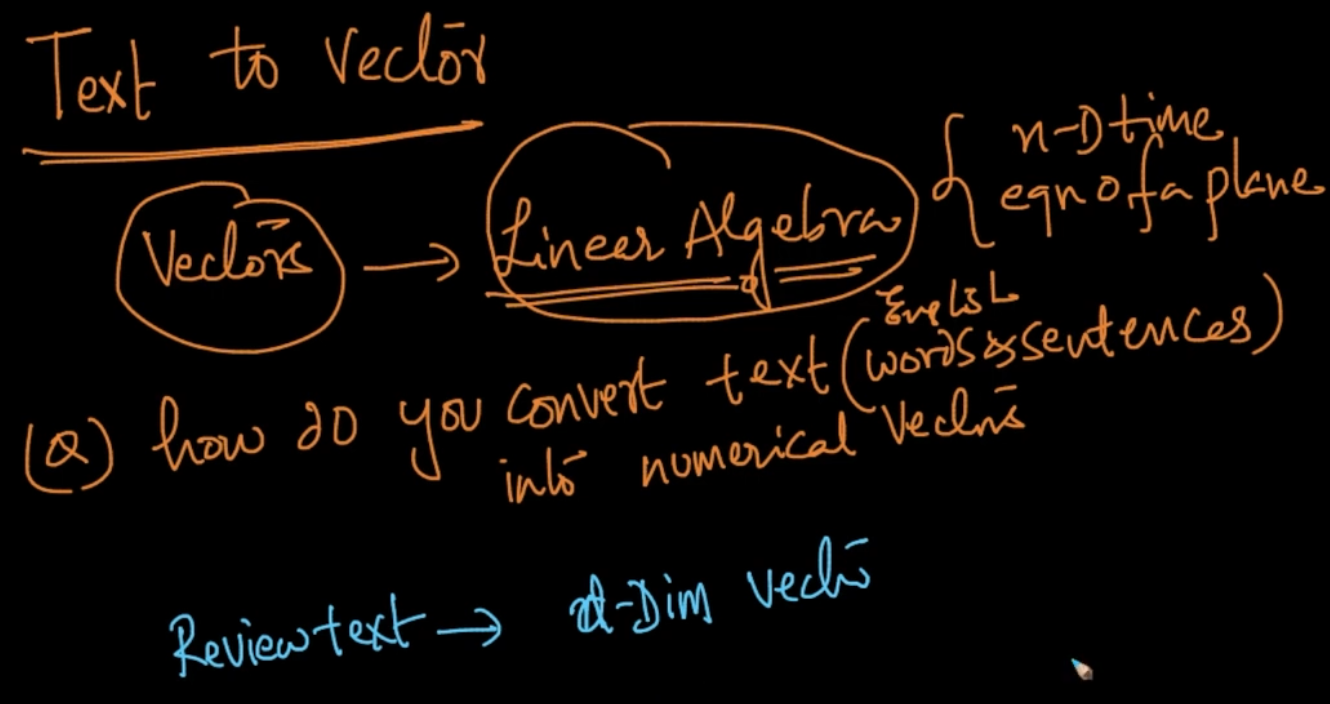 Text to Vector
Vectors → Linear Algebra { n-D time
eqn of a plane
(Q) how do you convert text (English words & sentences)
into numerical vectors
Review text → d-Dim vector